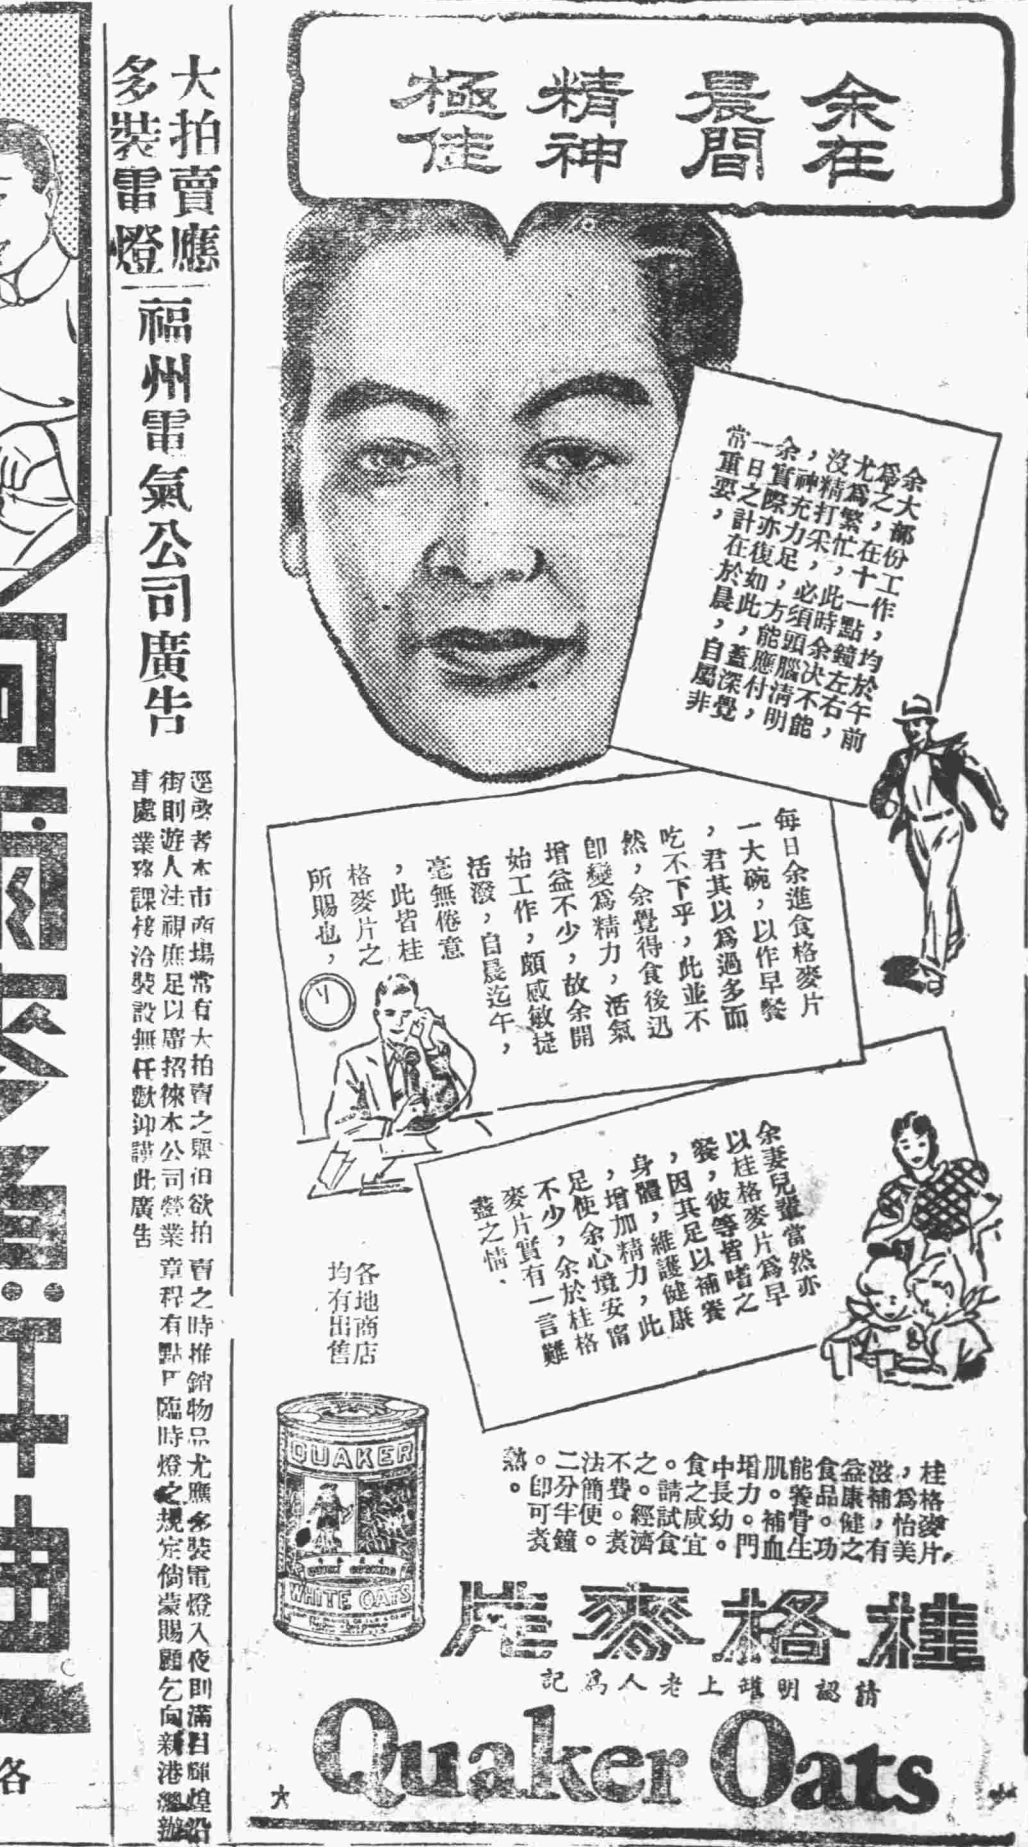 余在
晨間
精神
極佳
余大部份工作，均於午前
為之，在十一點鐘左右，
尤為繁忙，此時余决不能
沒精打采，必須頭腦清明
，神充力足，方能應付，
余實際亦復如此，蓋深覺
一日之計在於晨，自屬非
常重要，
每日余進食格麥片
一大碗，以作早餐
，君其以為過多而
吃不下乎，此並不
然，余覺得食後迅
即變為精力，活氣
增益不少，故余開
始工作，頗感敏捷
活潑，自晨迄午，
毫無倦意
，此皆桂
格麥片之
所賜也，
余妻兒輩當然亦
以桂格麥片為早
餐，彼等皆嗜之
，因其足以補養
身體，維護健康
，增加精力，此
足使余心境安甯
不少，余於桂格
麥片實有一言難
盡之情，
各地商店
均有出售
QUAKER
WHITE OATS
桂格麥片，
，為怡美
滋補，有
益康健之
食品。功
能養骨生
肌。補血
增力。門
中長幼。
食之咸宜
。請試食
之。經濟
不費。煮
法簡便。
二分半鐘
。即可煮
熟。
桂格麥片
請認明罐上老人為記
Quaker Oats
大拍賣應
多裝電燈
福州電氣公司廣告
逕啓者本市商場常有大拍賣之舉但欲拍賣之時推銷物品尤應多裝電燈入夜則滿目輝煌沿
街則遊人注視庶足以廣招徠本公司營業章程有點戶臨時燈之規定倘蒙賜顧乞向新港辦
事處業務課接洽裝設無任歡迎謹此廣告